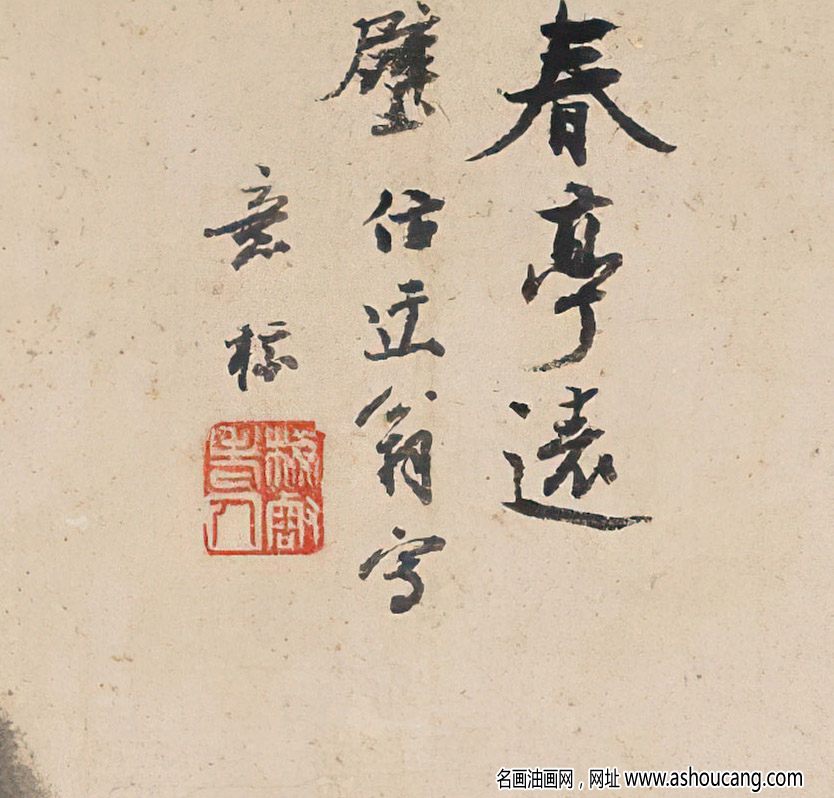 春亭遠
壁仿迂翁寫
意
名画油画网，网址 www.ashoucang.com